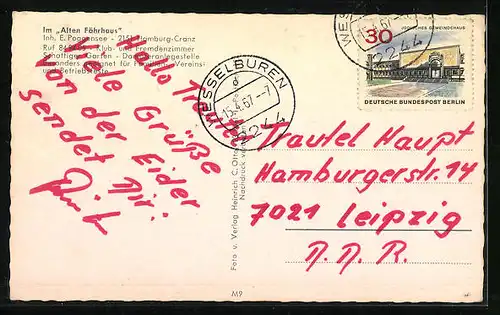 Im „Alten Fährhaus"
Inh. E. Poggensee - 2151 Hamburg-Cranz
Ruf 84 - Klub- und Fremdenzimmer
Schattiger Garten - Dampferanlegestelle
Besonders geeignet für Familien-, Vereins-
und Betriebsfeste
Hallo Trautel
Viele Grüße
von der Eider
sendet Dir:
WESSELBUREN
15.4.67 - 7
2244
WES
15.4.67
2244
30
JÜDISCHES GEMEINDEHAUS
DEUTSCHE BUNDESPOST BERLIN
Trautel Haupt
Hamburgerstr. 14
7021 Leipzig
D. D. R.
Foto u. Verlag Heinrich C. Otto
Nachdruck
M9